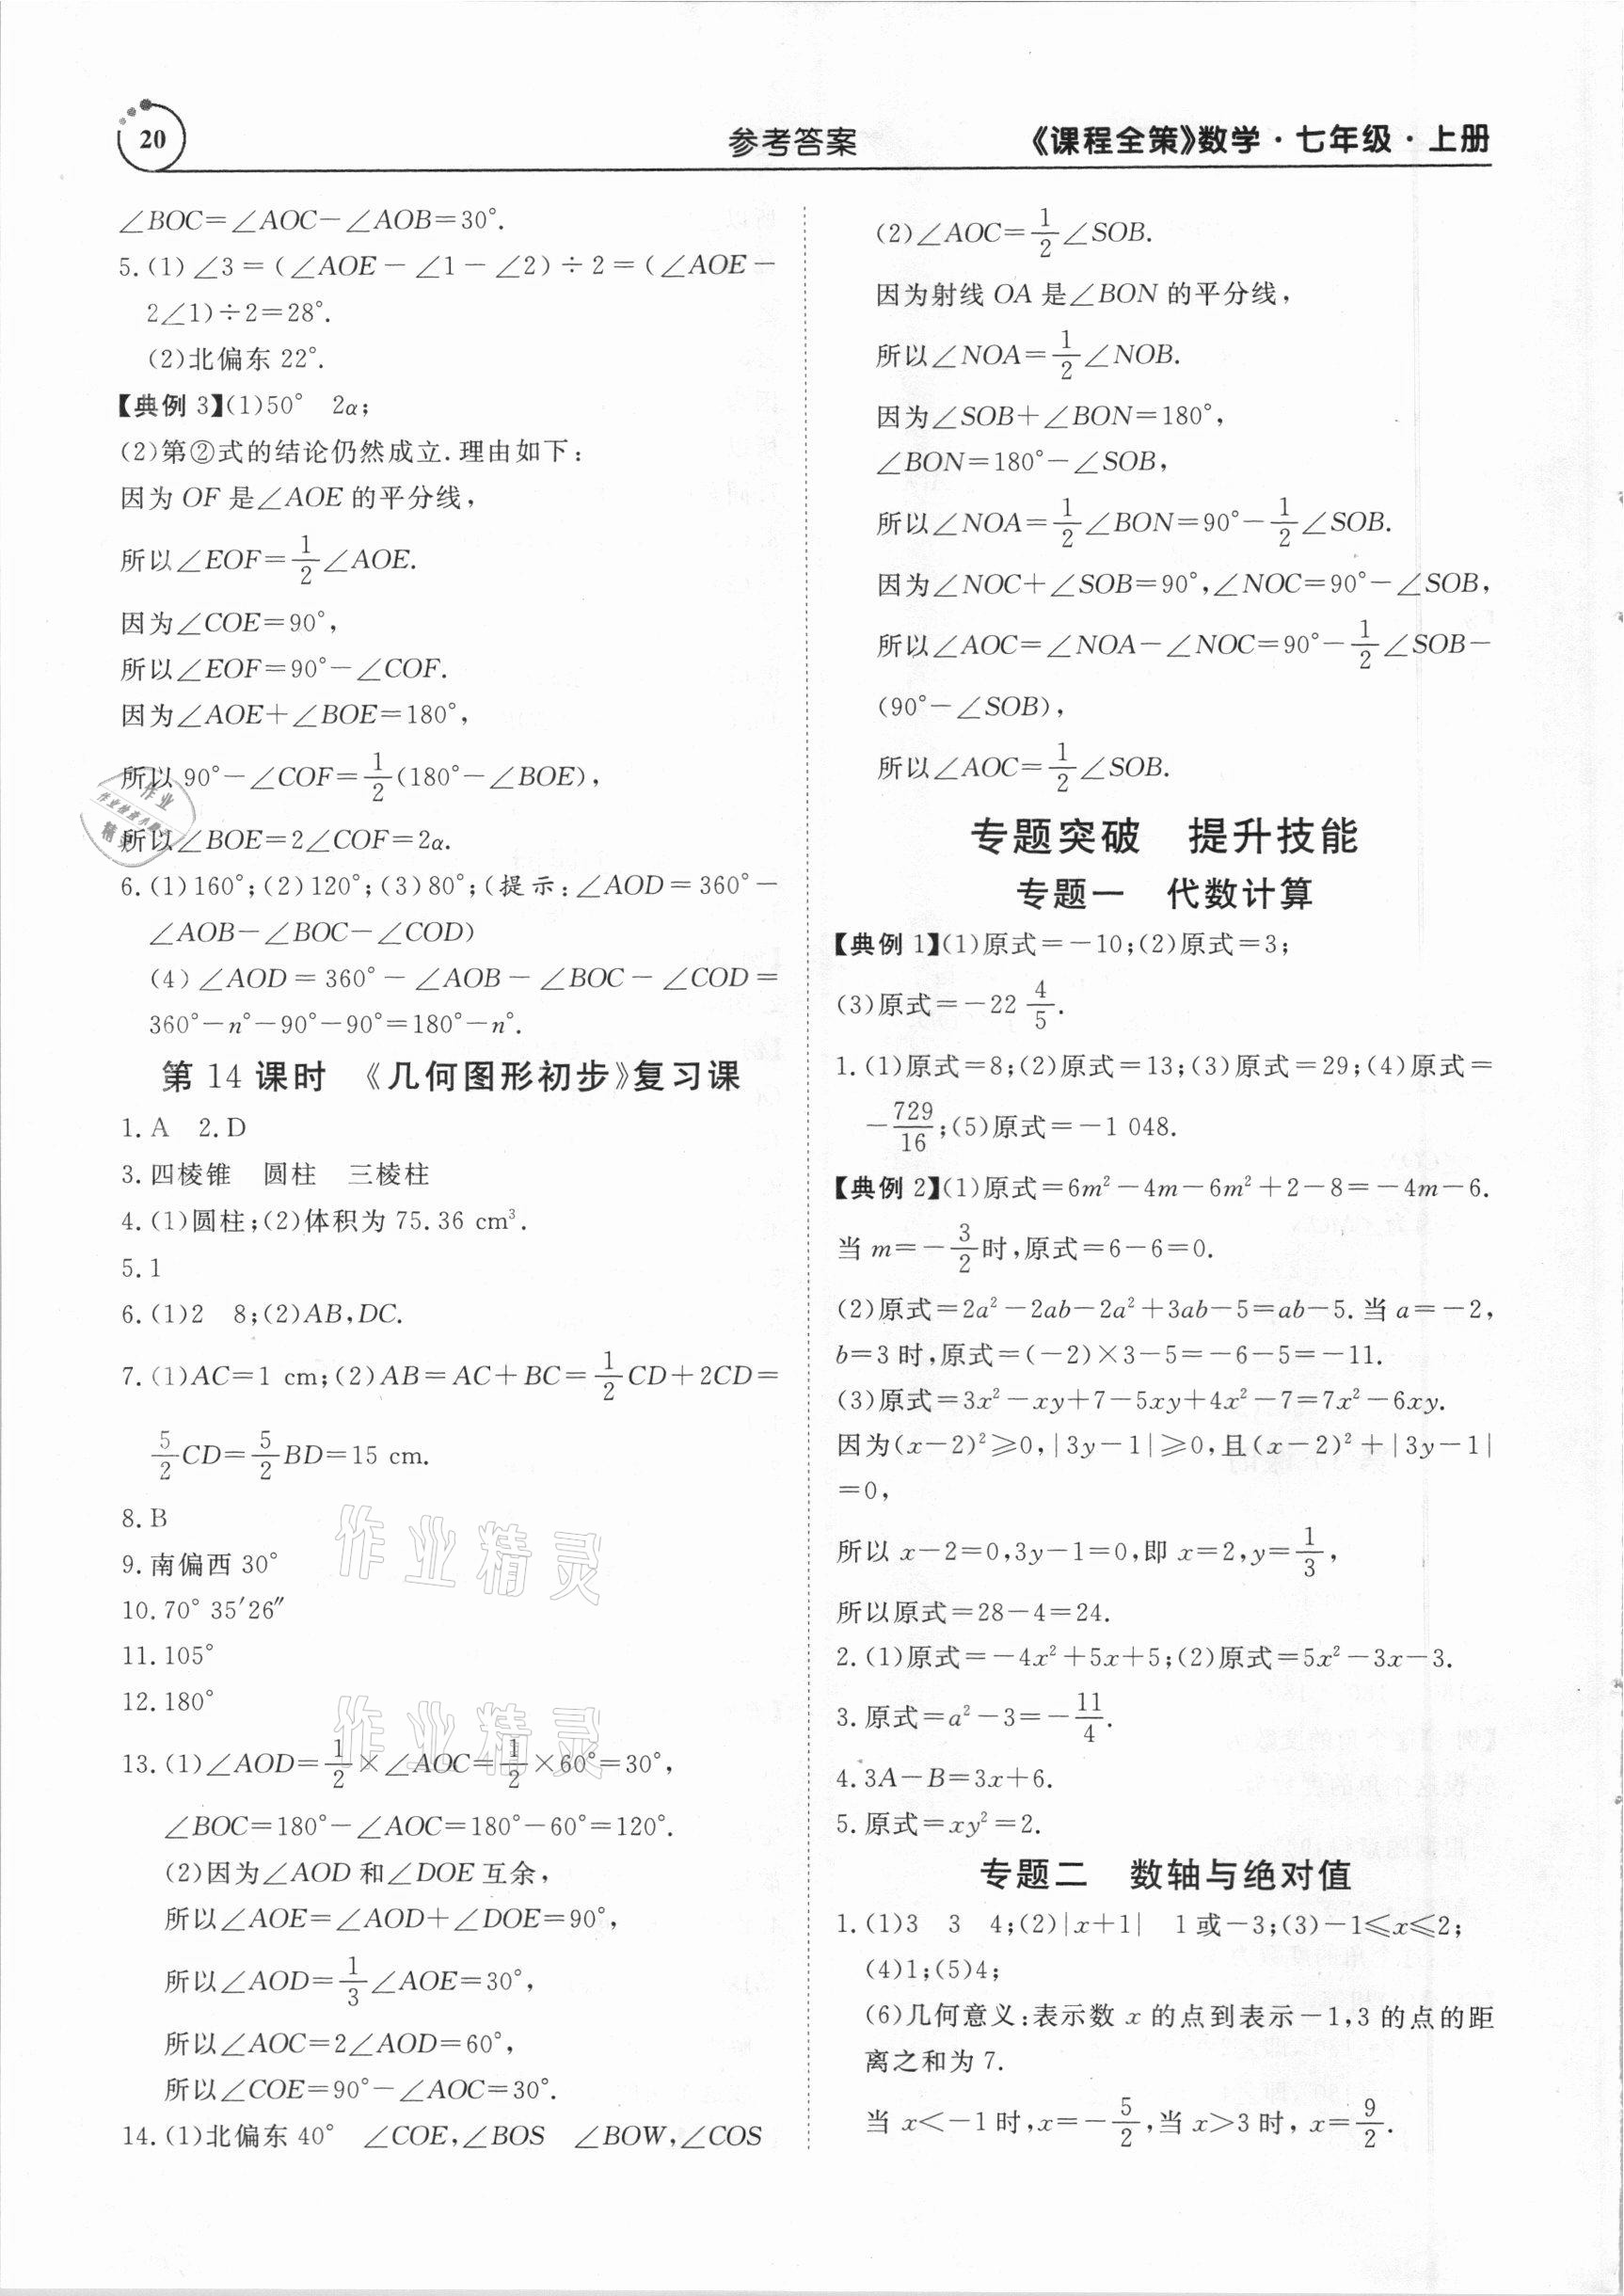 20
参考答案
《课程全策》数学·七年级·上册
∠BOC=∠AOC-∠AOB=30°.
5.(1)∠3=(∠AOE-∠1-∠2)÷2=(∠AOE-
2∠1)÷2=28°.
(2)北偏东 22°.
【典例 3】(1)50° 2α;
(2)第②式的结论仍然成立.理由如下:
因为 OF 是∠AOE 的平分线,
所以∠EOF=1/2∠AOE.
因为∠COE=90°,
所以∠EOF=90°-∠COF.
因为∠AOE+∠BOE=180°,
所以 90°-∠COF=1/2(180°-∠BOE),
所以∠BOE=2∠COF=2α.
6.(1)160°;(2)120°;(3)80°;(提示:∠AOD=360°-
∠AOB-∠BOC-∠COD)
(4)∠AOD=360°-∠AOB-∠BOC-∠COD=
360°-n°-90°-90°=180°-n°.
第 14 课时 《几何图形初步》复习课
1.A 2.D
3.四棱锥 圆柱 三棱柱
4.(1)圆柱;(2)体积为 75.36 cm³.
5.1
6.(1)2 8;(2)AB,DC.
7.(1)AC=1 cm;(2)AB=AC+BC=1/2CD+2CD=
5/2CD=5/2BD=15 cm.
8.B
9.南偏西 30°
10.70° 35′26″
11.105°
12.180°
13.(1)∠AOD=1/2×∠AOC=1/2×60°=30°,
∠BOC=180°-∠AOC=180°-60°=120°.
(2)因为∠AOD 和∠DOE 互余,
所以∠AOE=∠AOD+∠DOE=90°,
所以∠AOD=1/3∠AOE=30°,
所以∠AOC=2∠AOD=60°,
所以∠COE=90°-∠AOC=30°.
14.(1)北偏东 40° ∠COE,∠BOS ∠BOW,∠COS
(2)∠AOC=1/2∠SOB.
因为射线 OA 是∠BON 的平分线,
所以∠NOA=1/2∠NOB.
因为∠SOB+∠BON=180°,
∠BON=180°-∠SOB,
所以∠NOA=1/2∠BON=90°-1/2∠SOB.
因为∠NOC+∠SOB=90°,∠NOC=90°-∠SOB,
所以∠AOC=∠NOA-∠NOC=90°-1/2∠SOB-
(90°-∠SOB),
所以∠AOC=1/2∠SOB.
专题突破 提升技能
专题一 代数计算
【典例 1】(1)原式=-10;(2)原式=3;
(3)原式=-22 4/5.
1.(1)原式=8;(2)原式=13;(3)原式=29;(4)原式=
-729/16;(5)原式=-1 048.
【典例 2】(1)原式=6m²-4m-6m²+2-8=-4m-6.
当 m=-3/2时,原式=6-6=0.
(2)原式=2a²-2ab-2a²+3ab-5=ab-5.当 a=-2,
b=3 时,原式=(-2)×3-5=-6-5=-11.
(3)原式=3x²-xy+7-5xy+4x²-7=7x²-6xy.
因为(x-2)²≥0,|3y-1|≥0,且(x-2)²+|3y-1|
=0,
所以 x-2=0,3y-1=0,即 x=2,y=1/3,
所以原式=28-4=24.
2.(1)原式=-4x²+5x+5;(2)原式=5x²-3x-3.
3.原式=a²-3=-11/4.
4.3A-B=3x+6.
5.原式=xy²=2.
专题二 数轴与绝对值
1.(1)3 3 4;(2)|x+1| 1 或-3;(3)-1≤x≤2;
(4)1;(5)4;
(6)几何意义:表示数 x 的点到表示-1,3 的点的距
离之和为 7.
当 x<-1 时,x=-5/2,当 x>3 时, x=9/2.
作业精灵
作业精灵